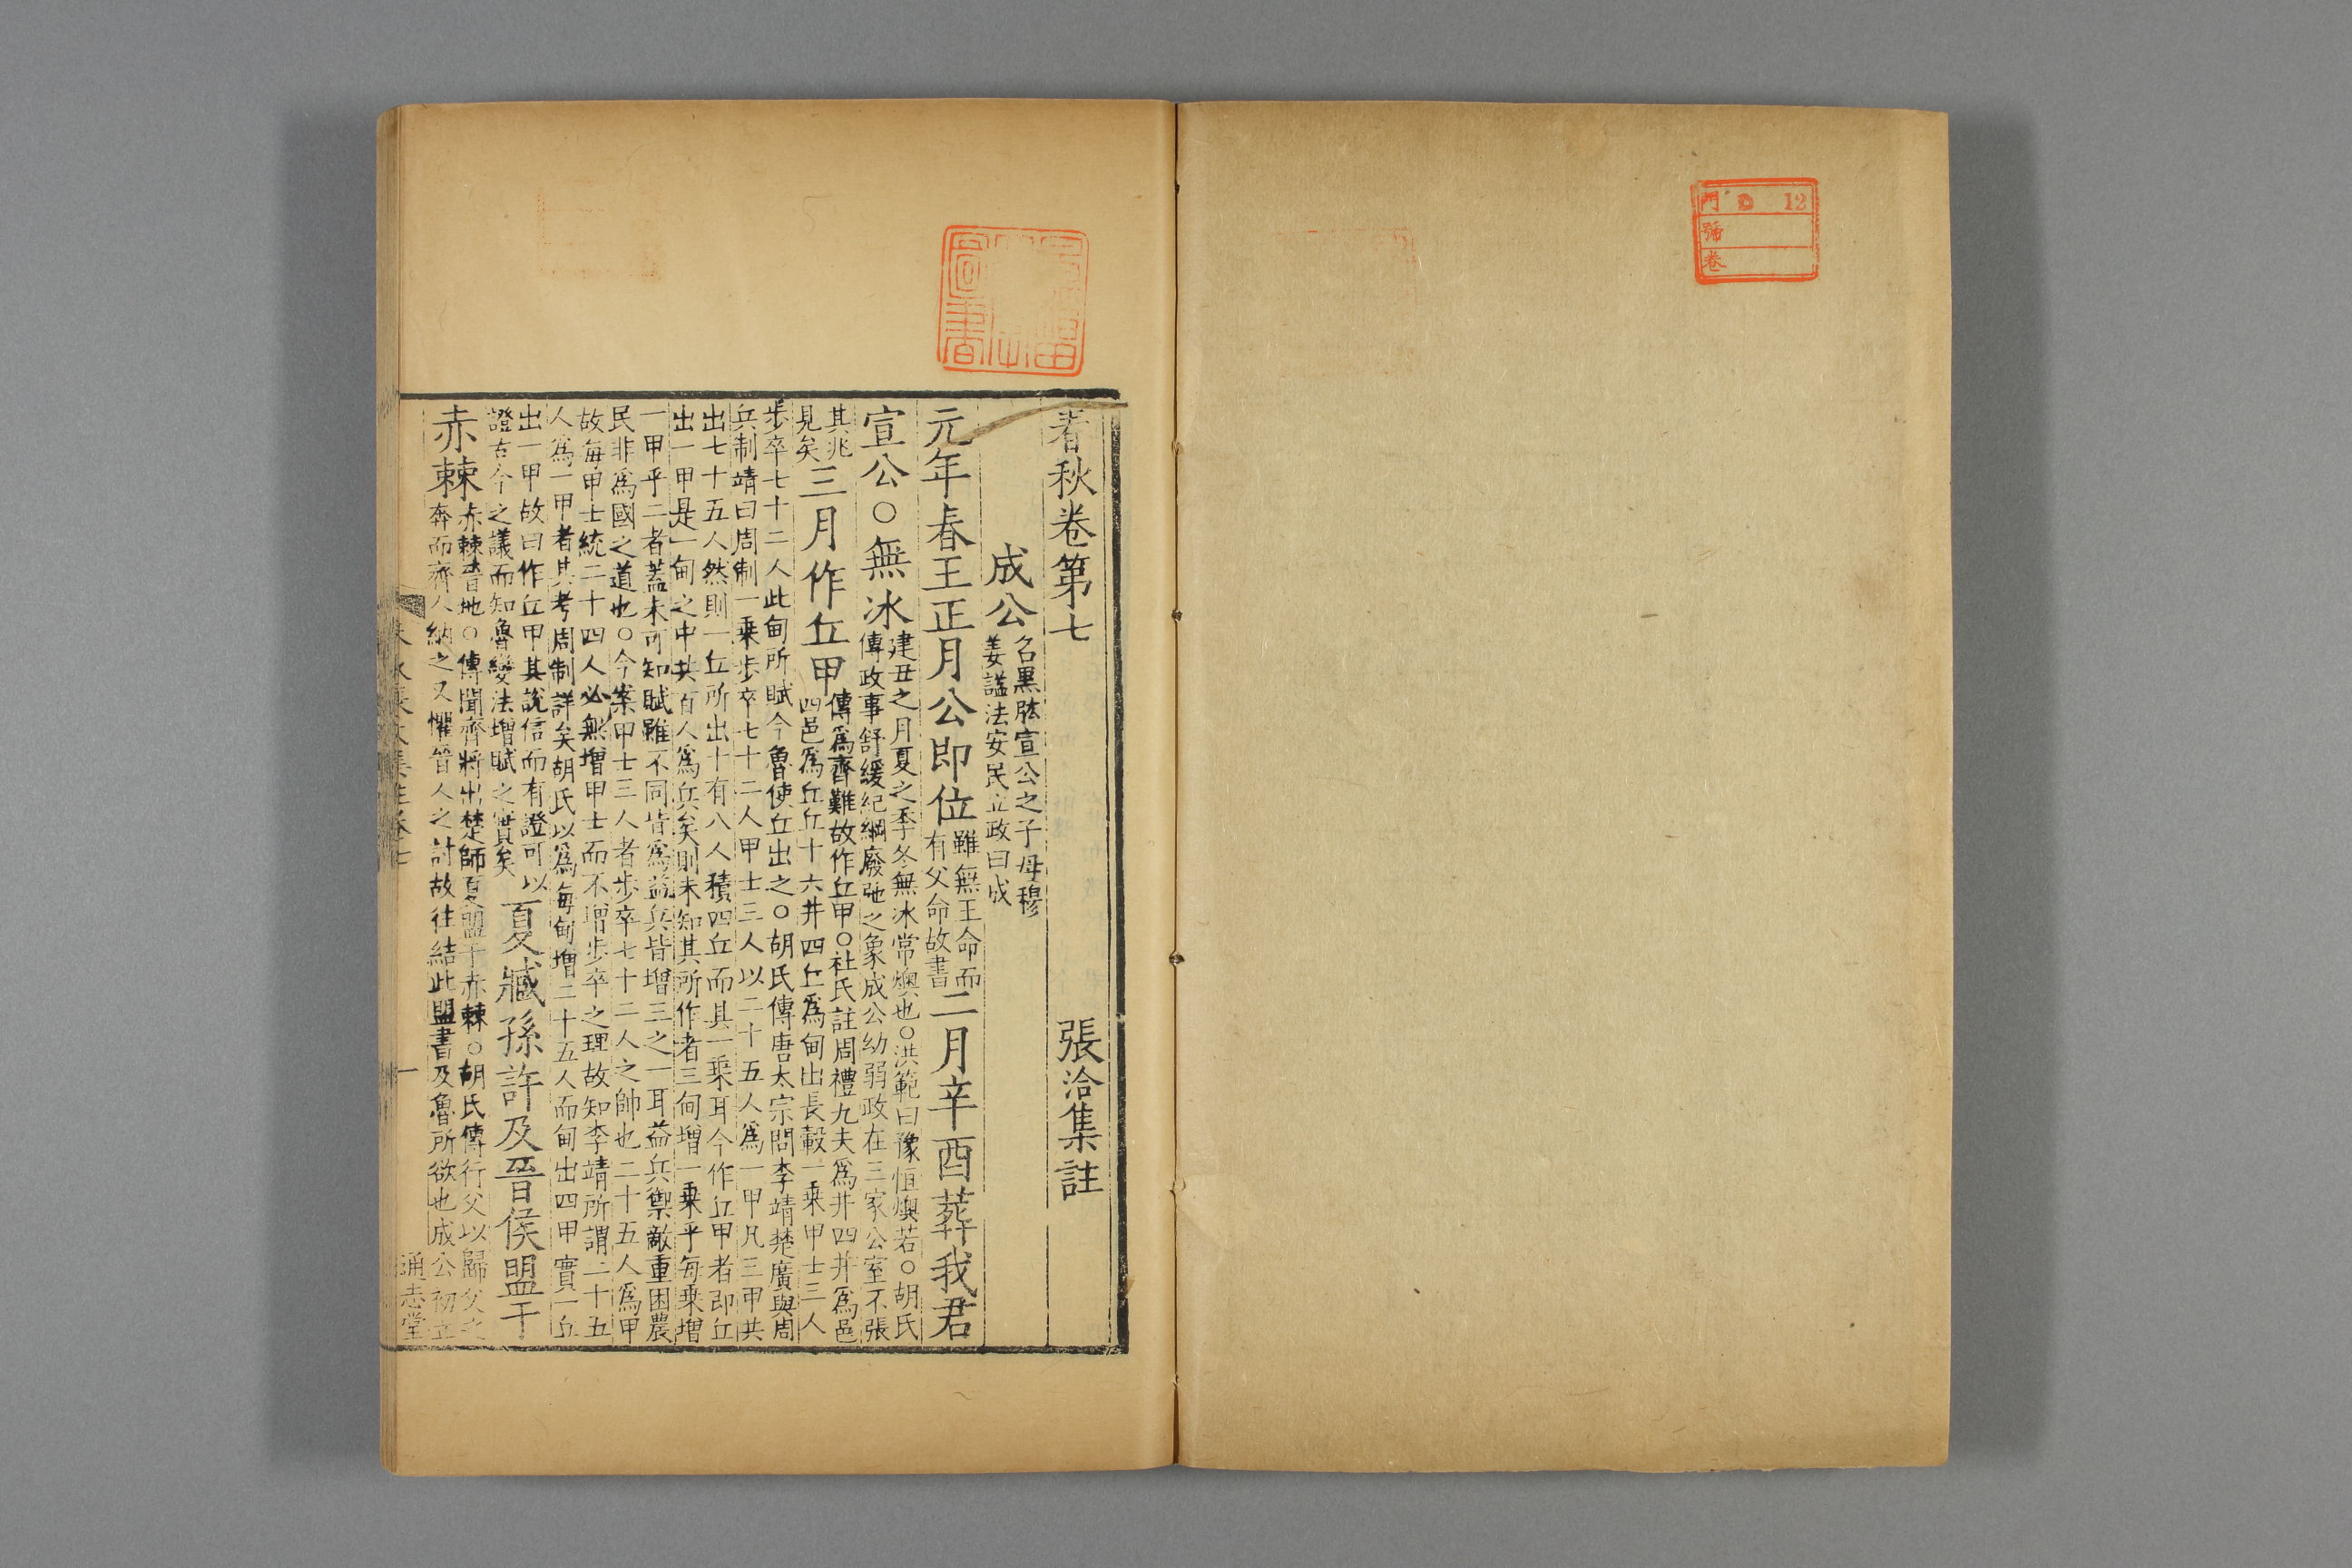 門 12
號
卷
圖書
春秋卷第七
張洽集註
成公
名黑肱宣公之子母穆
姜謚法安民立政曰成
元年春王正月公即位
雖無王命而
有父命故書
二月辛酉葬我君
宣公○無冰
建丑之月夏之季冬無冰常燠也○洪範曰豫恒燠若○胡氏
傳政事舒緩紀綱廢弛之象成公幼弱政在三家公室不張
其兆
見矣
三月作丘甲
傳爲齊難故作丘甲○杜氏註周禮九夫爲井四井爲邑
四邑爲丘丘十六井四丘爲甸出長轂一乗甲士三人
步卒七十二人此甸所賦今魯使丘出之○胡氏傳唐太宗問李靖楚廣與周
兵制靖曰周制一乗步卒七十二人甲士三人以二十五人爲一甲凡三甲共
出七十五人然則一丘所出十有八人積四丘而具一乗耳今作丘甲者即丘
出一甲是一甸之中共百人爲兵矣則未知其所作者三甸增一乗乎每乗增
一甲乎二者蓋未可知賦雖不同皆爲益兵皆增三之一耳益兵禦敵重困農
民非爲國之道也○今案甲士三人者步卒七十二人之帥也二十五人爲甲
故每甲士統二十四人必無增甲士而不增步卒之理故知李靖所謂二十五
人爲一甲者其考周制詳矣胡氏以爲每甸增二十五人而甸出四甲實一丘
出一甲故曰作丘甲其說信而有證可以
證古今之議而知魯變法增賦之實矣
夏臧孫許及晉侯盟于
赤棘
赤棘晉地○傳聞齊將出楚師夏盟于赤棘○胡氏傳行父以歸父之
奔而齊人納之又懼晉人之討故往結此盟書及魯所欲也成公初立
通志堂
一